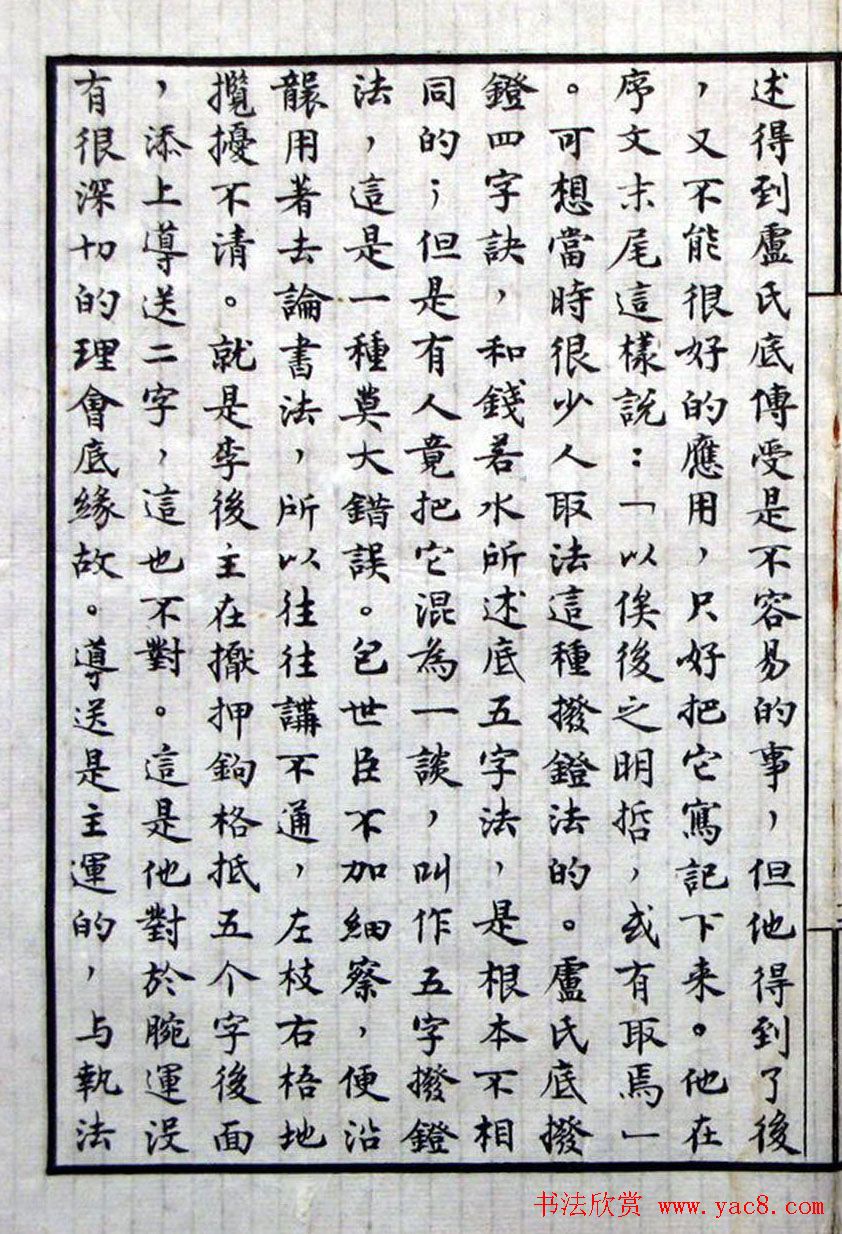 述得到盧氏底傳受是不容易的事，但他得到了後
，又不能很好的應用，只好把它寫記下来。他在
序文末尾這樣説：「以俟後之明哲，或有取焉」
。可想當時很少人取法這種撥鐙法的。盧氏底撥
鐙四字訣，和錢若水所述底五字法，是根本不相
同的；但是有人竟把它混為一談，叫作五字撥鐙
法，這是一種莫大錯誤。包世臣不加細察，便沿
襲用著去論書法，所以往往講不通，左枝右梧地
攬擾不清。就是李後主在擫押鉤格抵五个字後面
，添上導送二字，這也不對。這是他對於腕運没
有很深切的理會底緣故。導送是主運的，与執法
书法欣赏 www.yac8.com